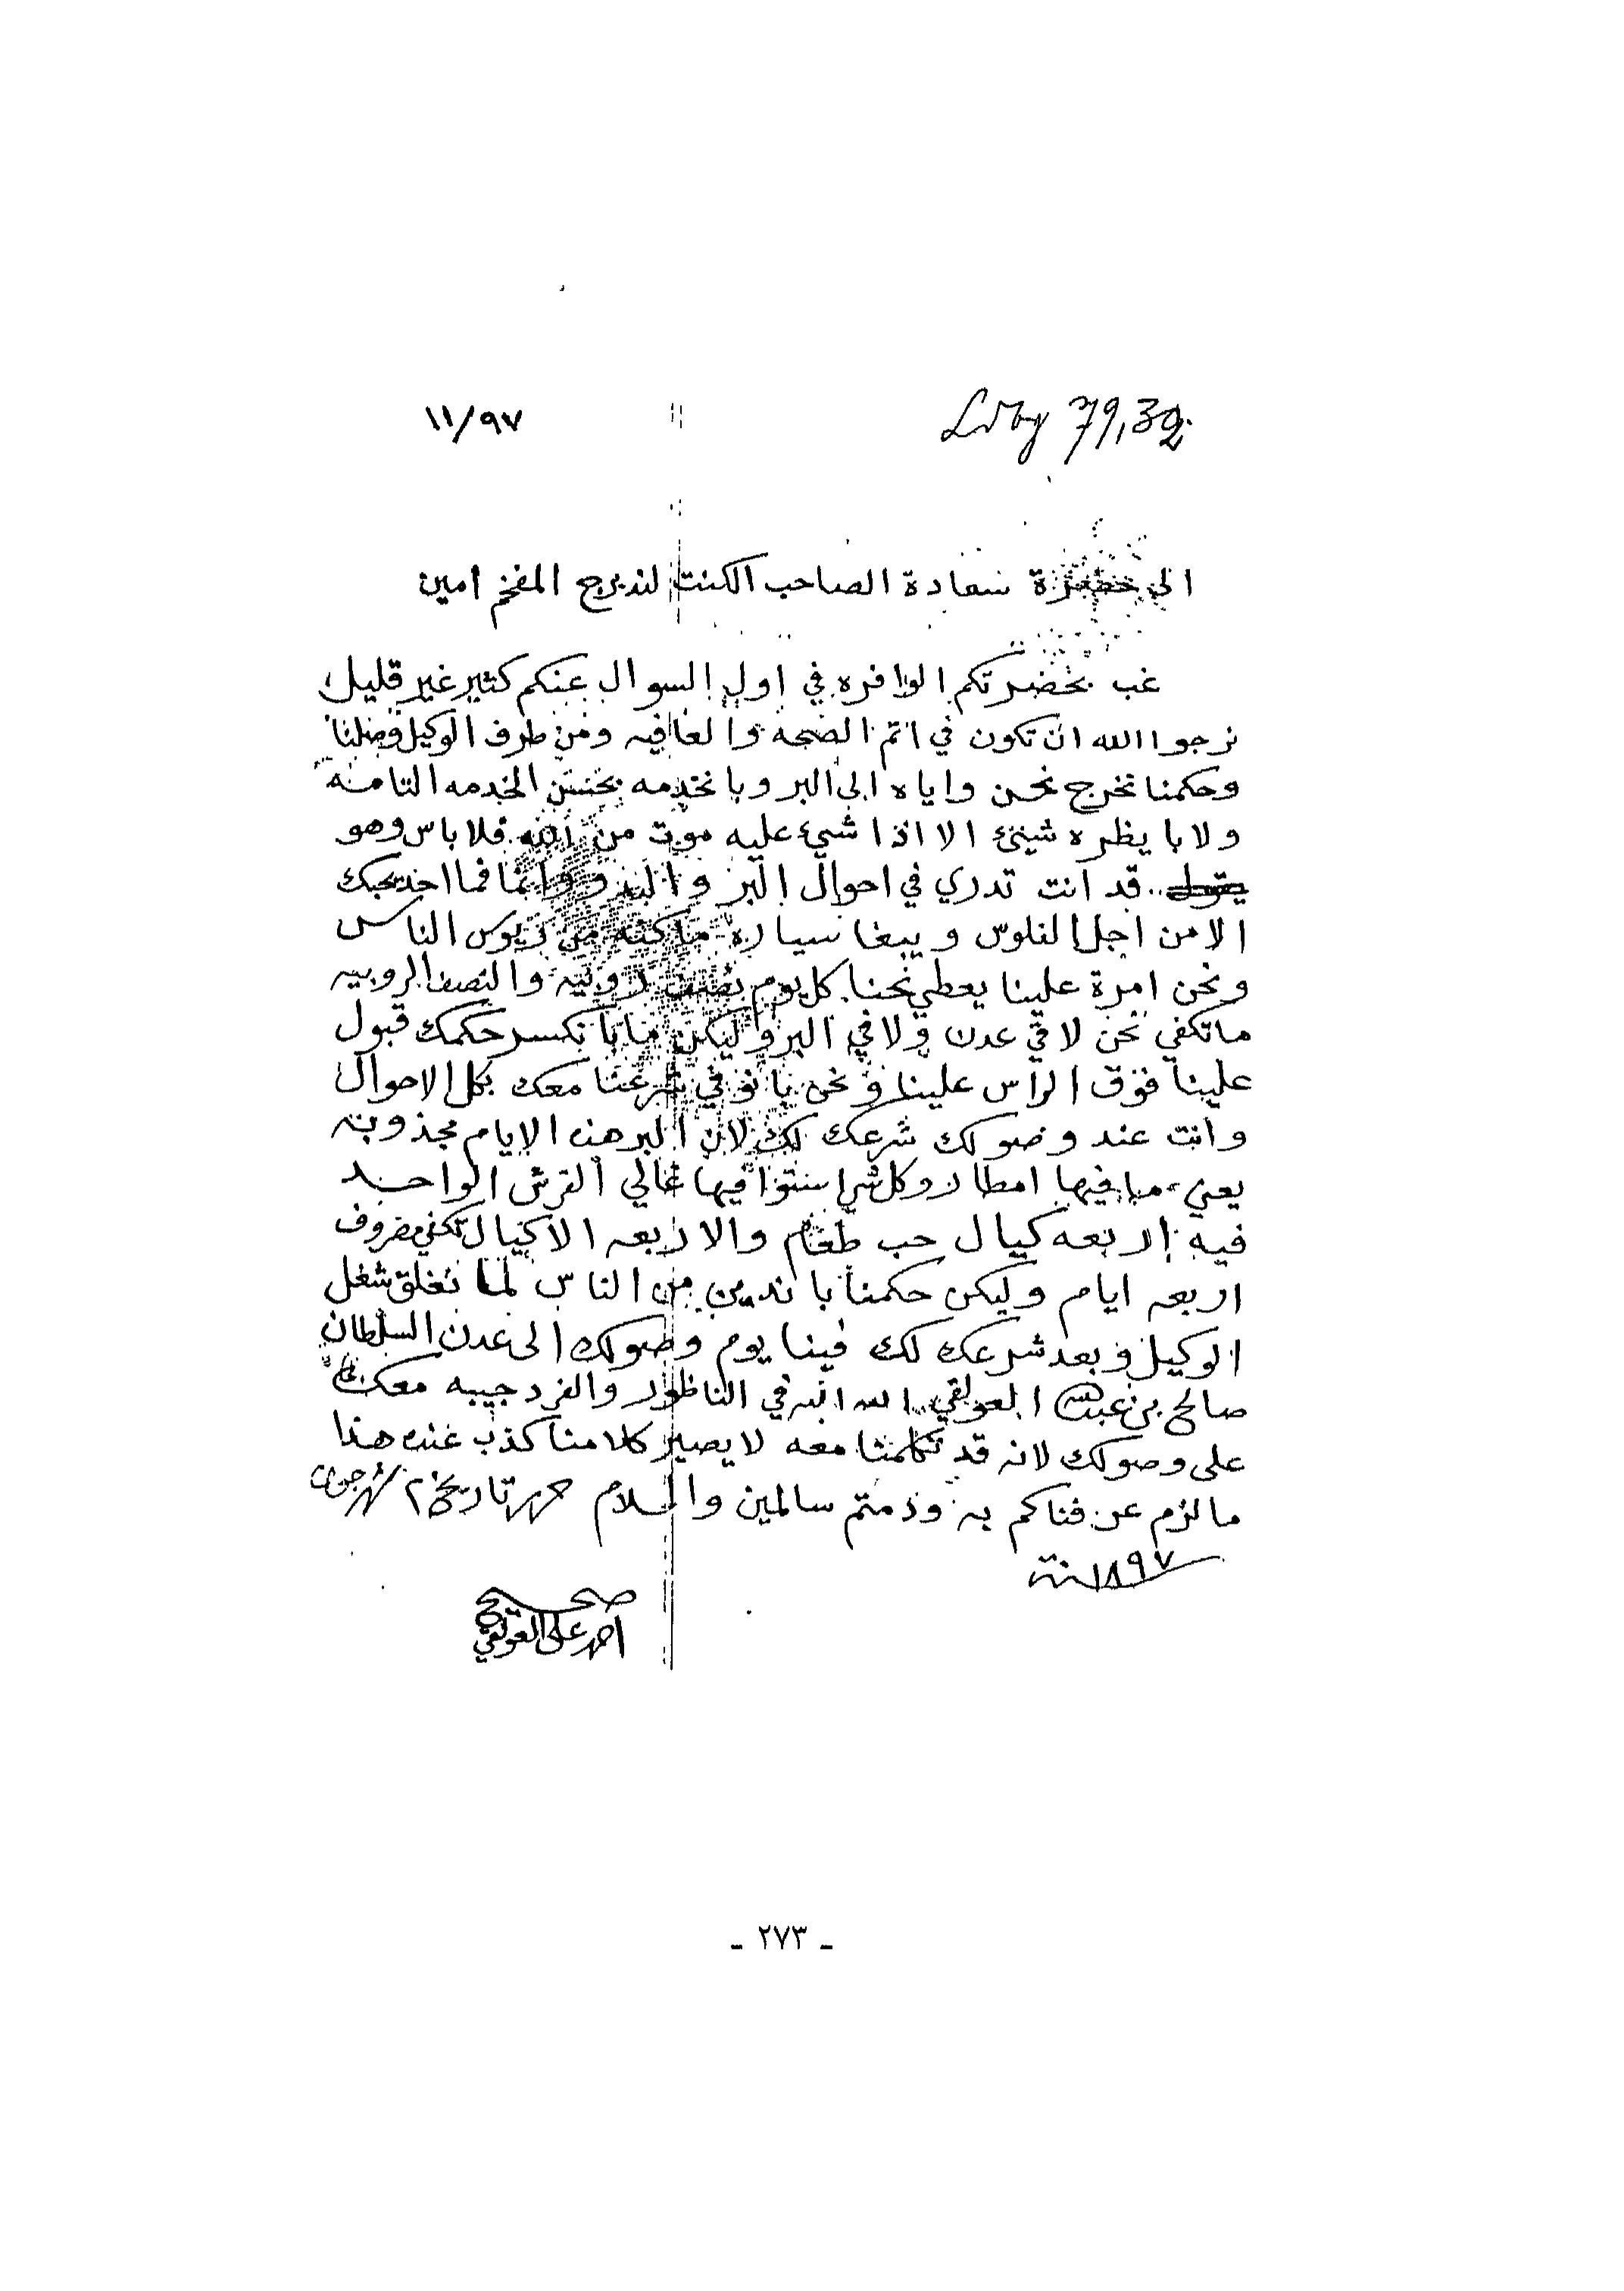 Ldbg 79,32.
١١/٩٧
الى حضرة سعادة الصاحب الكنت لندبرج المفخم امين
غب بحضرتكم الوافره في اول السوال عنكم كثير غير قليل
نرجوا الله ان تكون في اتم الصحة والعافيه ومن طرف الوكيل وصلنا
وحكمنا نخرج نحن واياه الى البر وبا نخدمه بحسن الخدمه التامة
ولا با يظره شيئ الا اذا شيء عليه موت من الله فلا باس وهو
قد انت تدري في احوال البر والبدو وانما فما احد يحبك
الا من اجل الفلوس ويبغا سياره من روس الناس
ونحن امرة علينا يعطي نحنا كل يوم نصف روبيه والنصف الروبيه
ماتكفي نحن لا في عدن ولا في البر وليكن ما با نكسر حكمك قبول
علينا فوق الراس علينا ونحن با نوفي شرعنا معك بكل الاحوال
وانت عند وصولك شرعك لك لان البر هذه الايام مجذوبة
يعني ما فيها امطار وكل شي سنتوا فيها غالي القرش الواحد
فيه اربعه كيال حب طعام والاربعه الاكيال تكفي مصروف
اربعه ايام وليكن حكمنا با ندين من الناس لما نغلق شغل
الوكيل وبعد شرعك لك فينا يوم وصولك الى عدن السلطان
صالح بن عبدالله العولقي الله الله في الناظور والفرد جيبه معك
على وصولك لانه قد تكلمنا معه لا يصير كلامنا كذب عنده هذا
مالزم عرفناكم به ودمتم سالمين والسلام حرر تاريخ ٢ شهر جون
سنة ١٨٩٧
صحيح
احمد علي العولقي
ـ ٢٧٣ ـ